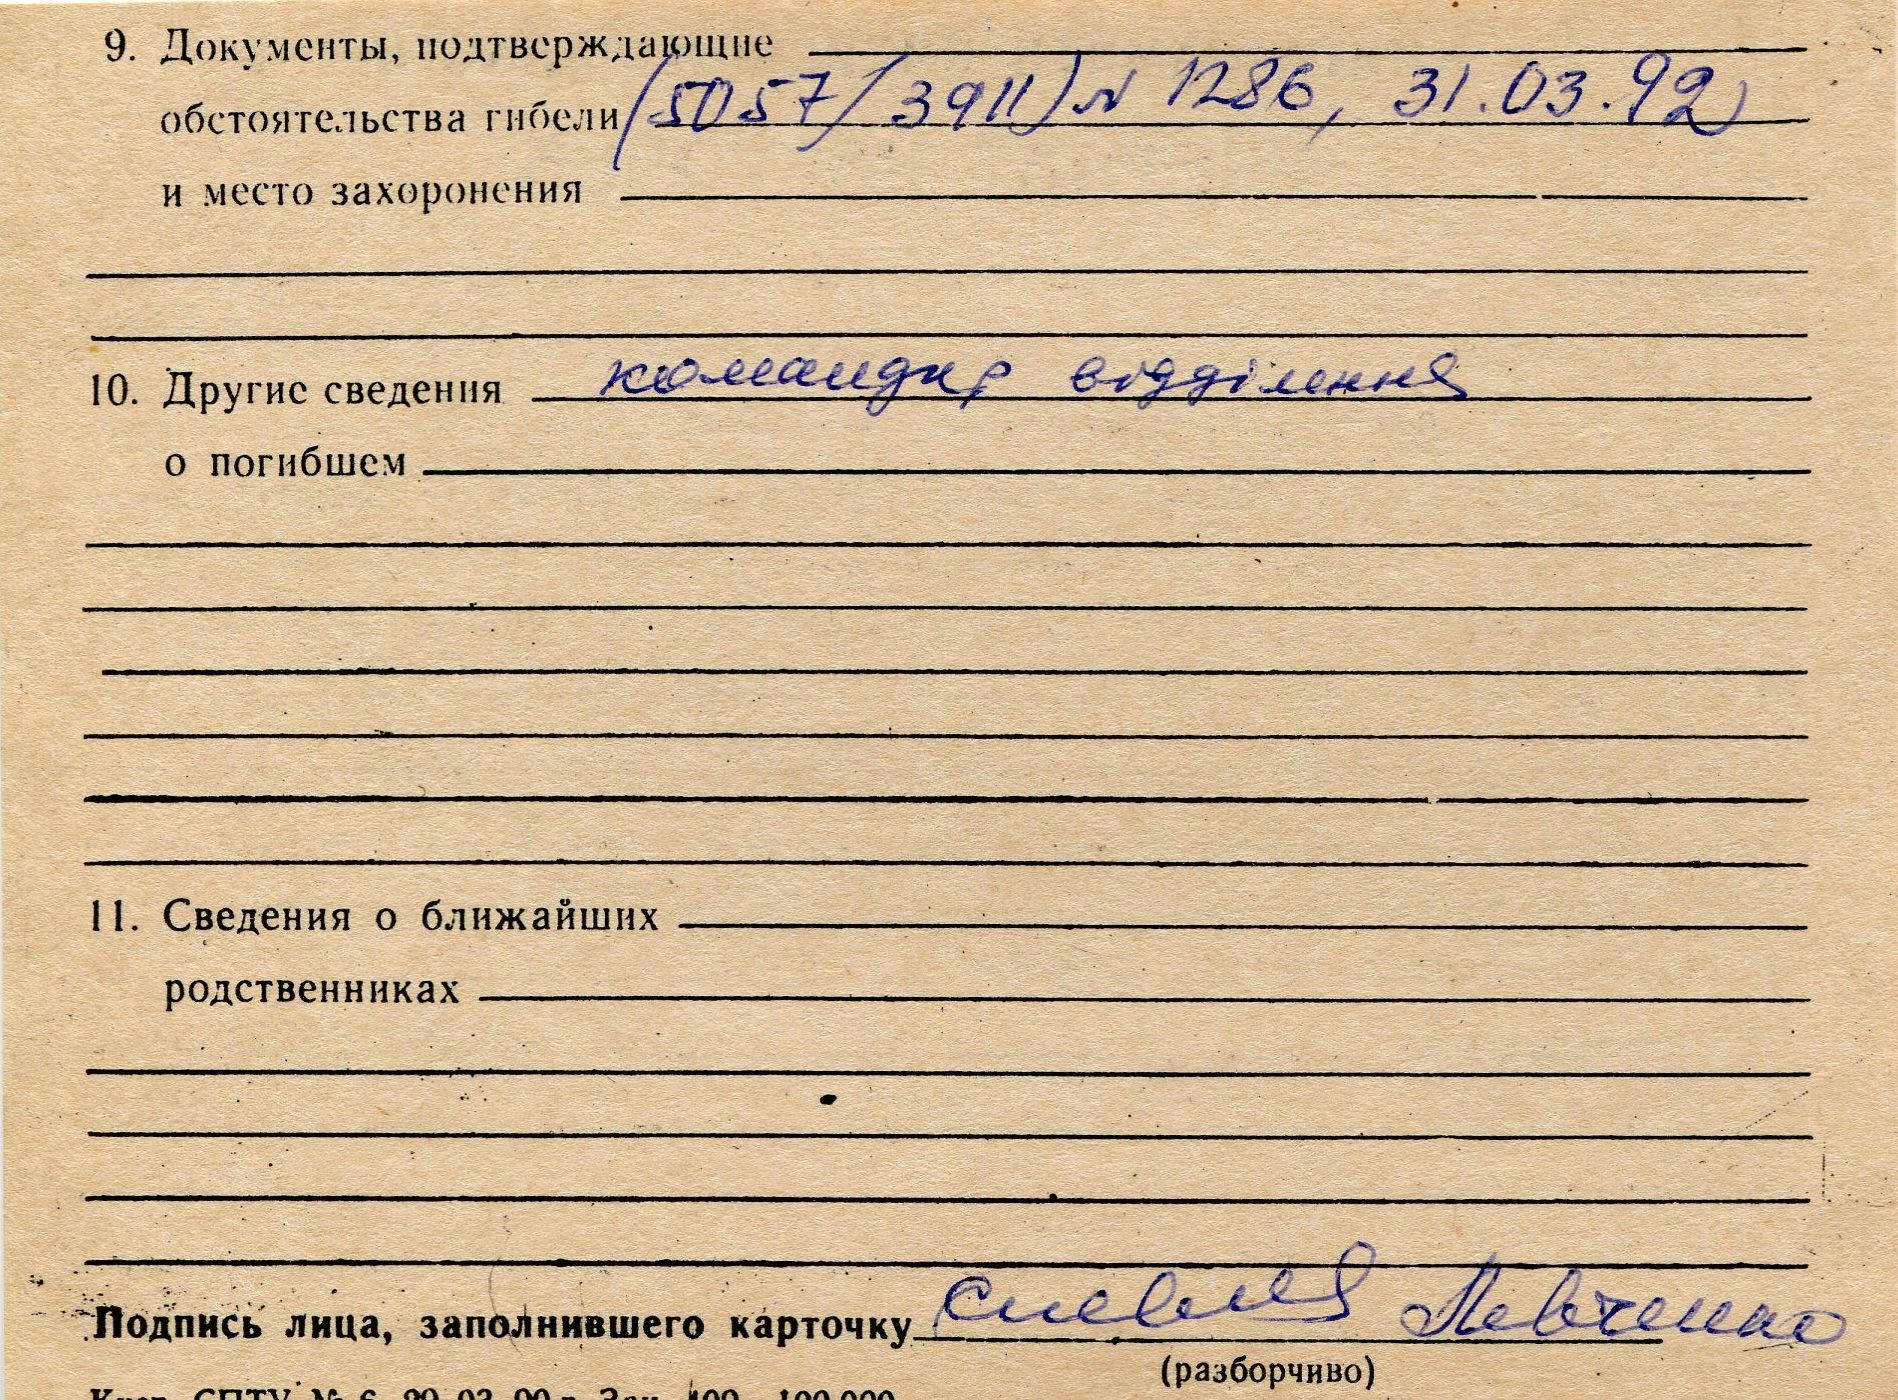 9. Документы, подтверждающие
обстоятельства гибели (5057/3911) N 1286, 31.03.92
и место захоронения
10. Другие сведения командир відділення
о погибшем
11. Сведения о ближайших
родственниках
Подпись лица, заполнившего карточку Левченко
(разборчиво)
СПТУ № 6